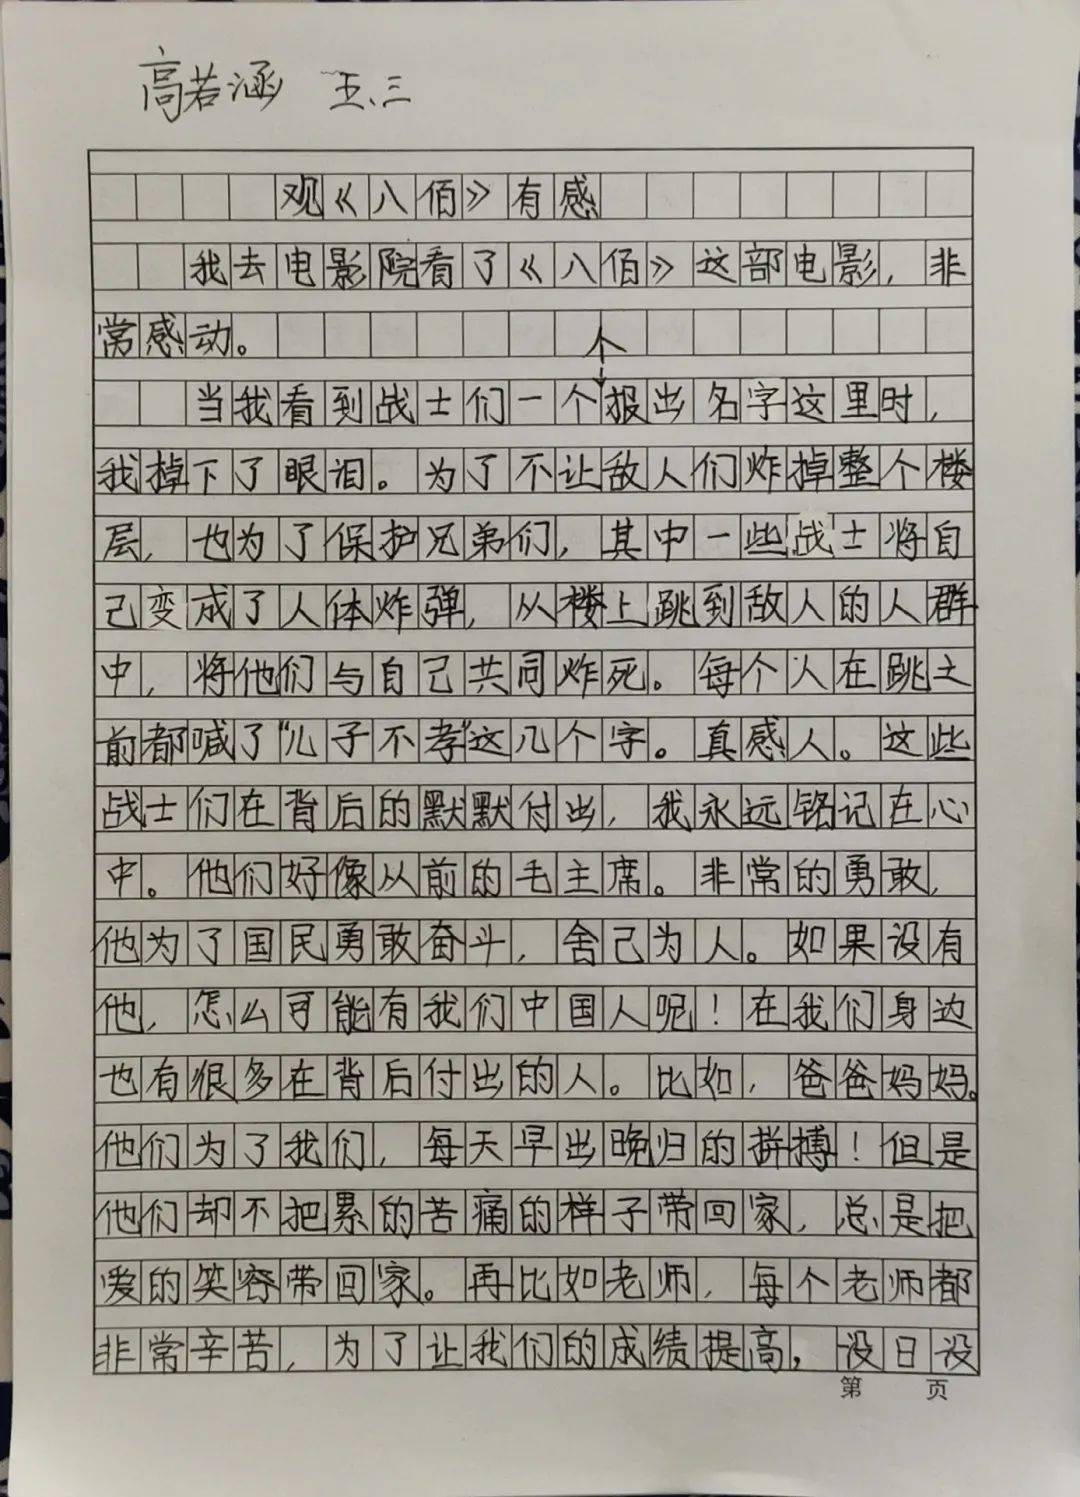 高若涵 五、三
观《八佰》有感
我去电影院看了《八佰》这部电影，非
常感动。
个
当我看到战士们一个报出名字这里时，
我掉下了眼泪。为了不让敌人们炸掉整个楼
层，也为了保护兄弟们，其中一些战士将自
己变成了人体炸弹，从楼上跳到敌人的人群
中，将他们与自己共同炸死。每个人在跳之
前都喊了“儿子不孝”这几个字。真感人。这些
战士们在背后的默默付出，我永远铭记在心
中。他们好像从前的毛主席。非常的勇敢，
他为了国民勇敢奋斗，舍己为人。如果没有
他，怎么可能有我们中国人呢！在我们身边
也有很多在背后付出的人。比如，爸爸妈妈。
他们为了我们，每天早出晚归的拼搏！但是
他们却不把累的苦痛的样子带回家，总是把
爱的笑容带回家。再比如老师，每个老师都
非常辛苦，为了让我们的成绩提高，没日没
第 页